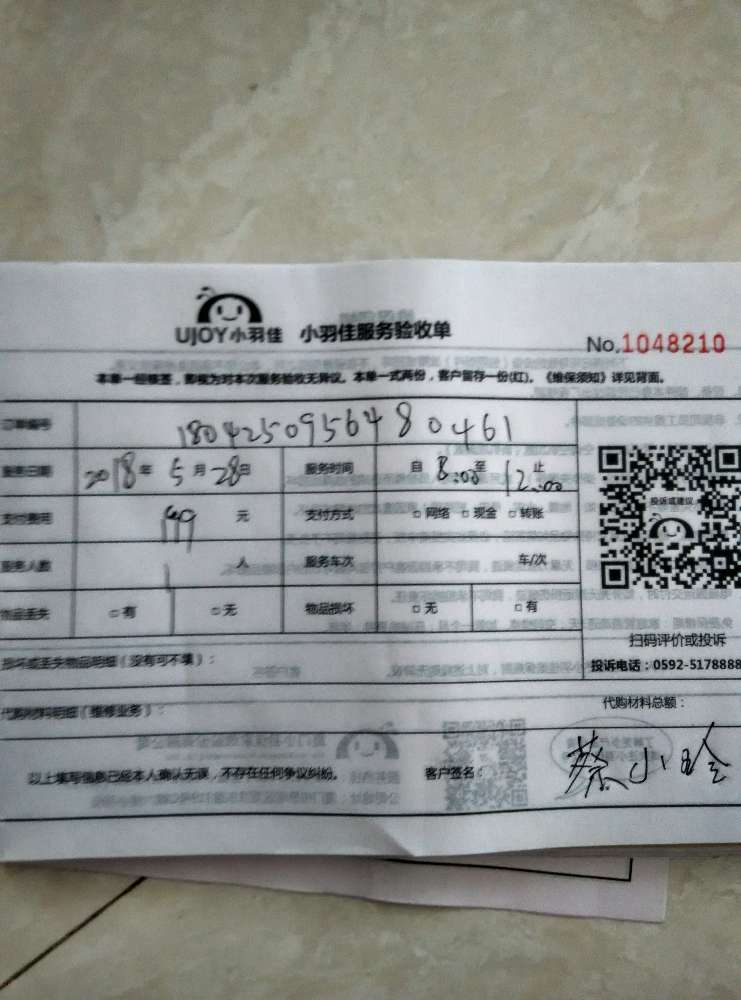 UJOY小羽佳 小羽佳服务验收单
No.1048210
本单一经核签，即视为对本次服务验收无异议。本单一式两份，客户留存一份(红)。《维保须知》详见背面。
订单编号 1804250956480461
服务日期 2018年5月28日 服务时间 自8:00至12:00止
支付费用 元 支付方式 □网络 □现金 □转账
投诉或建议
服务人数 1人 服务车次 车/次
物品丢失 □有 □无 物品损坏 □无 □有
扫码评价或投诉
损坏或丢失物品明细（没有可不填）：
投诉电话：0592-5178888
代购材料明细（维修业务）： 代购材料总额：
以上填写信息已经本人确认无误，不存在任何争议纠纷。 客户签名： 蔡小玲